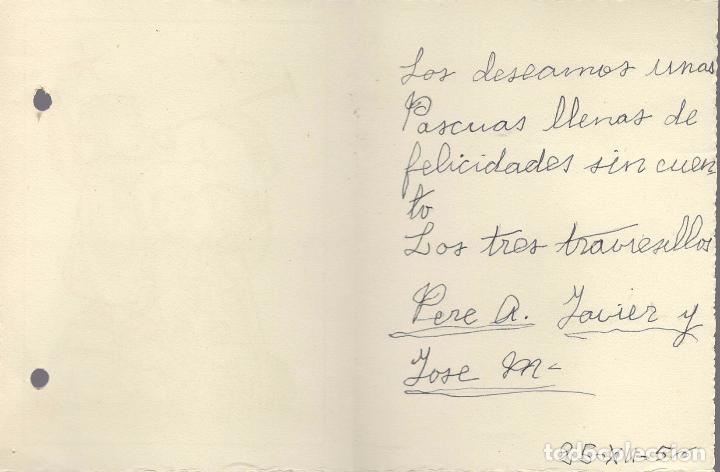 Los deseamos unas
Pascuas llenas de
felicidades sin cuen
to
Los tres traviesillos
Pere A. Javier y
Jose M-
25-XII-5
todocoleccion.net